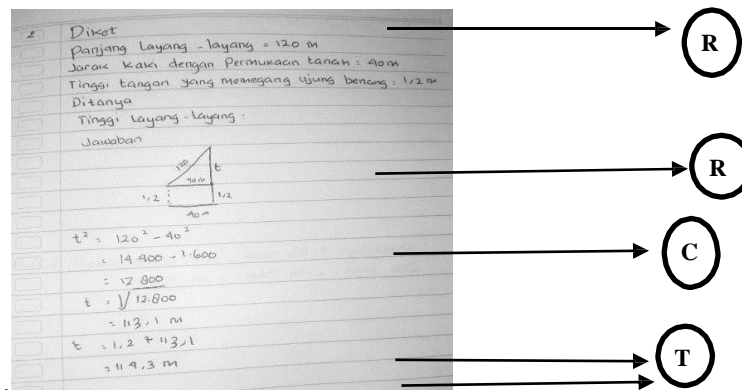 2 Diket
R
Panjang Layang - layang = 120 m
Jarak kaki dengan Permukaan tanah : 40m
Tinggi tangan yang memegang ujung benang : 1,2 m
Ditanya
Tinggi Layang - Layang :
Jawaban
120 t
40 m
R
1,2 1,2
40 m
t² = 120² - 40²
= 14.400 - 1.600
C
= 12 800
t = √12.800
= 113,1 m
t = 1,2 + 113,1
= 114,3 m
T